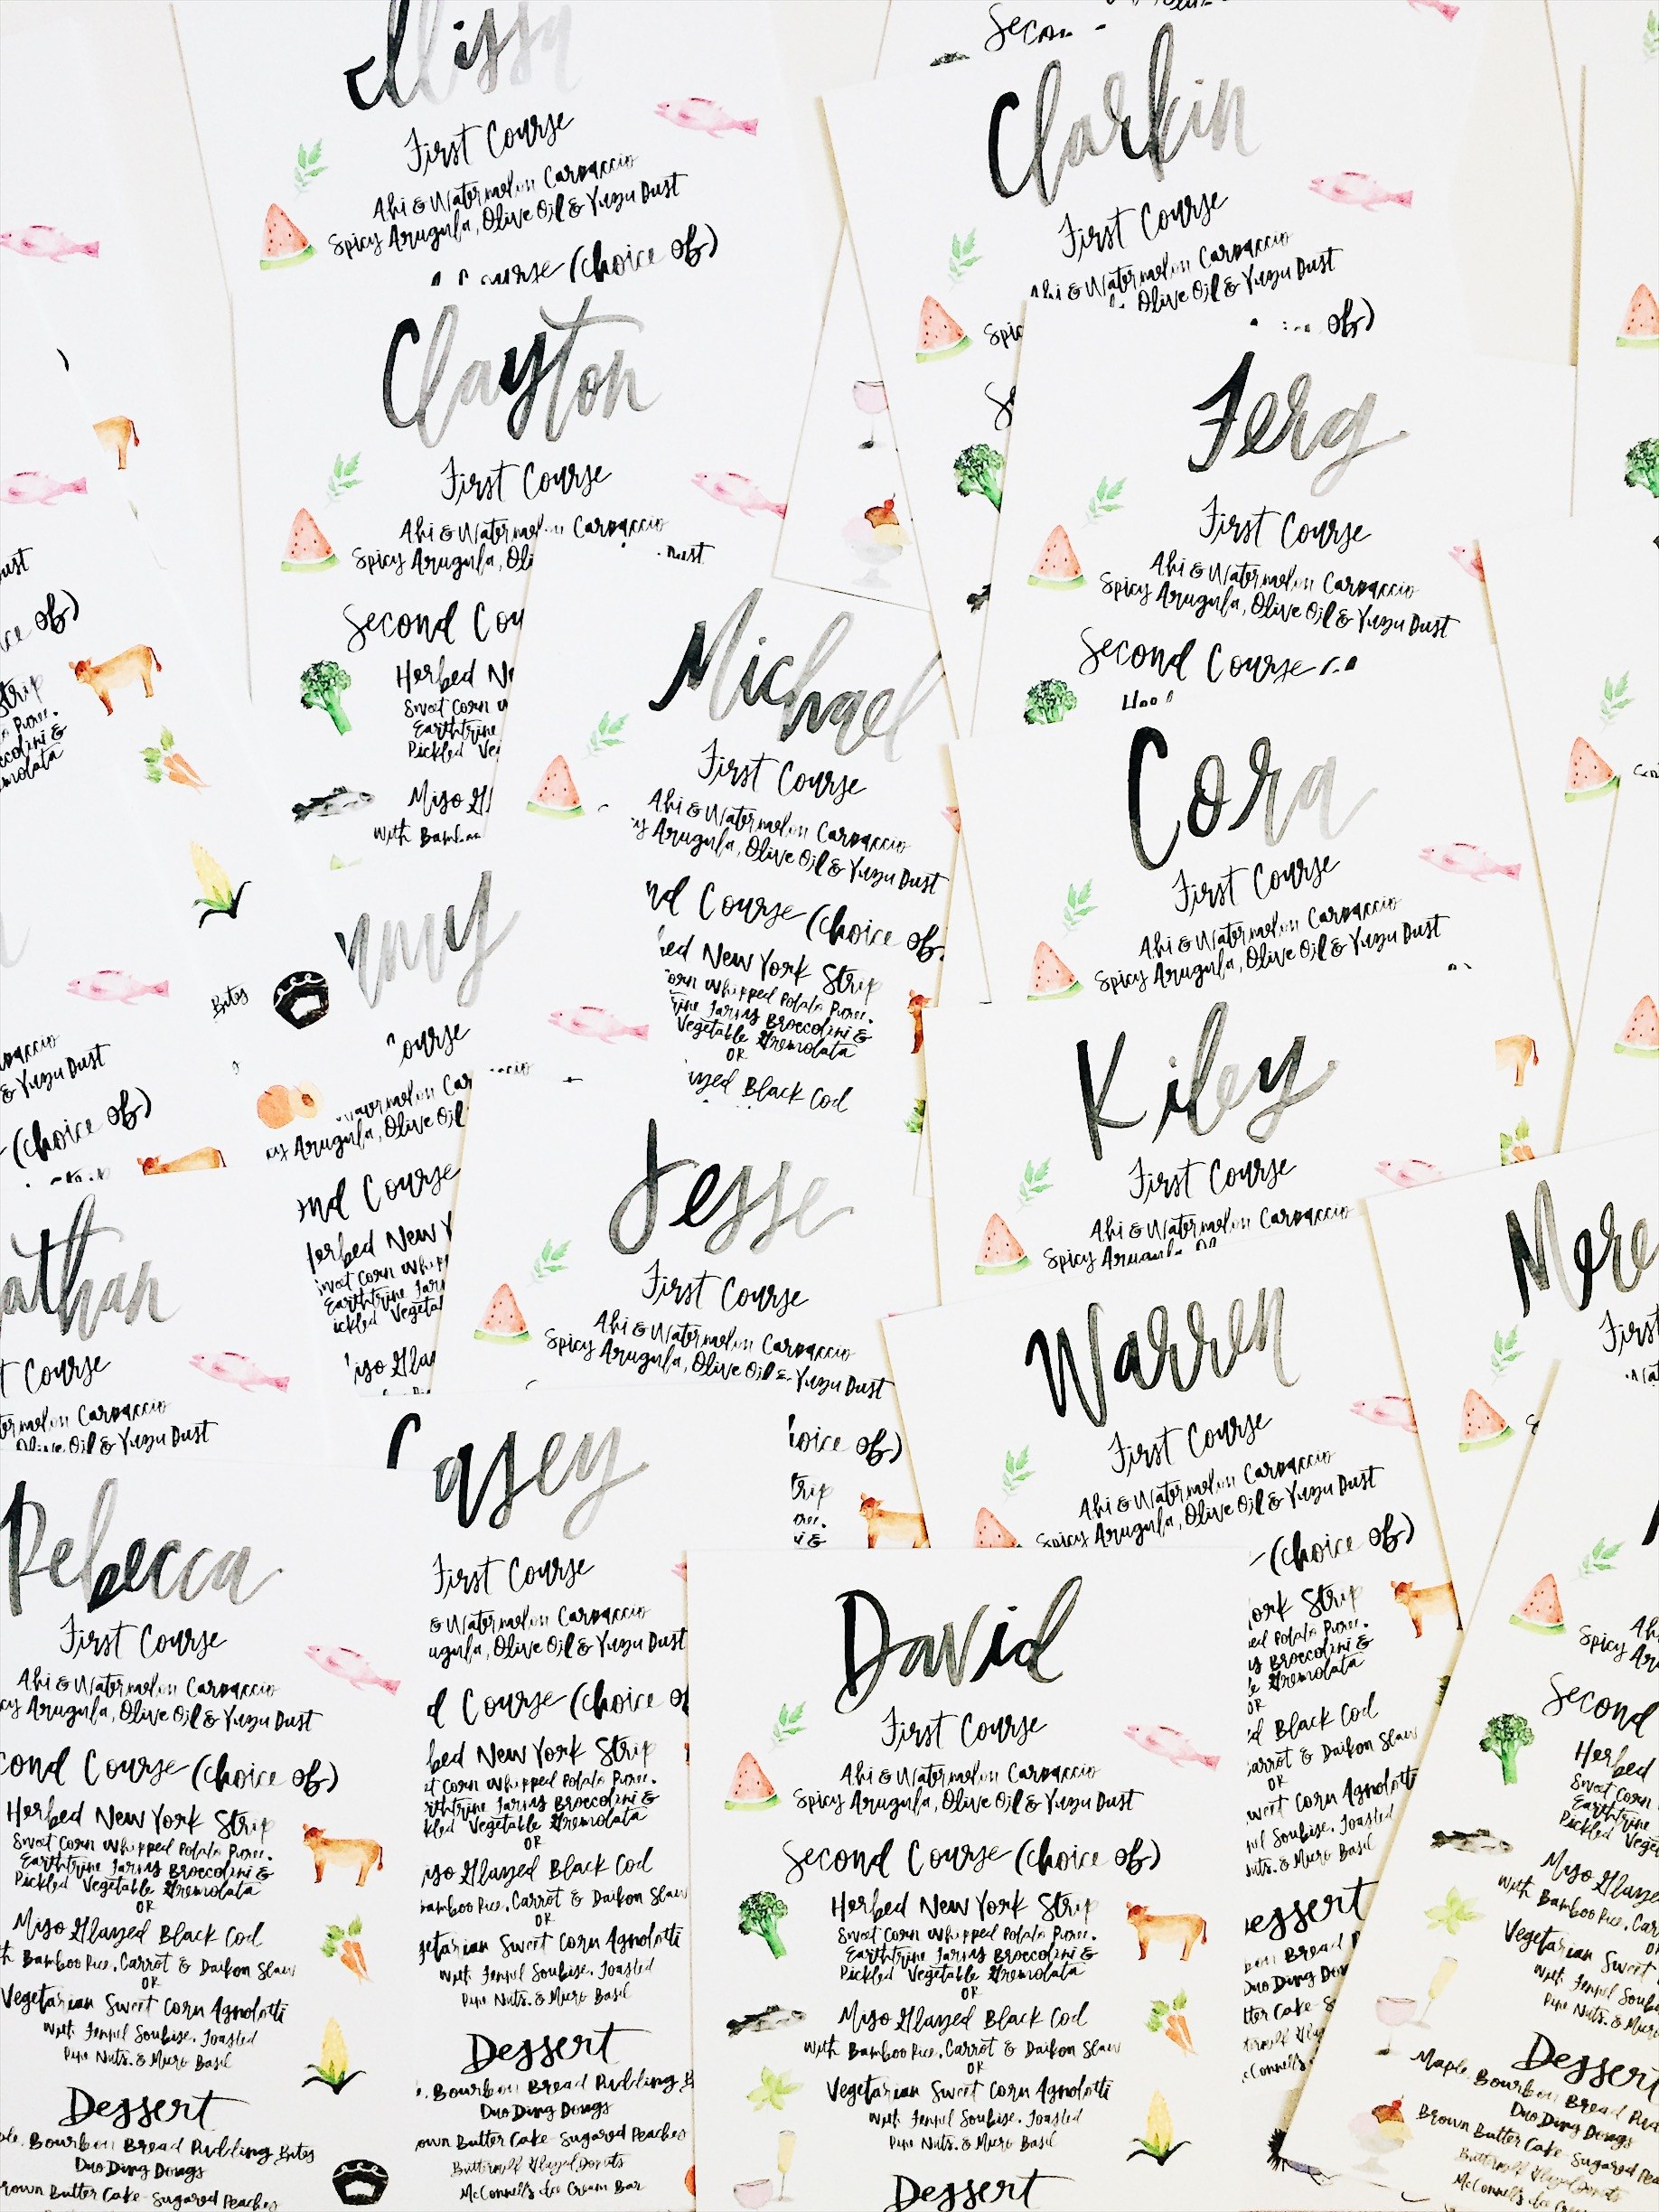 Secon
Clarkin
First Course
Ahi & Watermelon Carpaccio
Spic
Olive Oil & Yuzu Dust
of)
First Course
Ahi & Watermelon Carpaccio
Spicy Arugula, Olive Oil & Yuzu Dust
Course (choice of)
Clayton
First Course
Ahi & Watermelon Carpaccio
Spicy Arugula, Oli
Dust
Second Cou
Herbed Ne
Sweet Corn W
Earthtrine
Pickled Veg
Miso Gl
With Bamboo
Ferg
First Course
Ahi & Watermelon Carpaccio
Spicy Arugula, Olive Oil & Yuzu Dust
Second Course
Michael
First Course
Ahi & Watermelon Carpaccio
y Arugula, Olive Oil & Yuzu Dust
nd Course (choice of
bed New York Strip
orn Whipped Potato Puree.
trine Farms Broccolini &
Vegetable Gremolata
OR
Black Cod
Cora
First Course
Ahi & Watermelon Carpaccio
Spicy Arugula, Olive Oil & Yuzu Dust
ust
ice of)
Strip
Puree.
ccolini &
molata
Bites
paccio
& Yuzu Dust
(choice of)
mmy
Course
Watermelon Car
cy Arugula, Olive Oil
ond Course
Herbed New Y
Sweet Corn Whipp
Earthtrine Far
ickled Vegetab
Miso Glaz
Kiley
First Course
Ahi & Watermelon Carpaccio
Spicy Arugula
Jesse
First Course
Ahi & Watermelon Carpaccio
Spicy Arugula, Olive Oil & Yuzu Dust
hoice of)
trip
ree.
i &
Mere
First
athan
t Course
termelon Carpaccio
Olive Oil & Yuzu Dust
Warren
First Course
Ahi & Watermelon Carpaccio
Spicy Arugula, Olive Oil & Yuzu Dust
(choice of)
ork Strip
ed Potato Puree.
s Broccolini &
e Gremolata
OR
d Black Cod
arrot & Daikon Slaw
OR
weet Corn Agnolotti
nel Soubise, Toasted
uts, & Micro Basil
essert
bon Bread P
Duo Ding Don
tter Cake S
cConnell's
Rebecca
First Course
Ahi & Watermelon Carpaccio
cy Arugula, Olive Oil & Yuzu Dust
cond Course (choice of)
Herbed New York Strip
Sweet Corn Whipped Potato Puree.
Earthtrine Farms Broccolini &
Pickled Vegetable Gremolata
OR
Miso Glazed Black Cod
h Bamboo Rice, Carrot & Daikon Slaw
OR
Vegetarian Sweet Corn Agnolotti
With Fennel Soubise, Toasted
Pine Nuts, & Micro Basil
Dessert
ple, Bourbon Bread Pudding Bites
Duo Ding Dongs
rown Butter Cake-Sugared Peaches
Casey
First Course
& Watermelon Carpaccio
ugula, Olive Oil & Yuzu Dust
d Course (choice of
bed New York Strip
t Corn Whipped Potato Puree.
rthtrine Farms Broccolini &
kled Vegetable Gremolata
OR
iso Glazed Black Cod
Bamboo Rice, Carrot & Daikon Slaw
OR
getarian Sweet Corn Agnolotti
With Fennel Soubise, Toasted
Pine Nuts, & Micro Basil
Dessert
, Bourbon Bread Pudding B
Duo Ding Dongs
own Butter Cake-Sugared Peaches
Buttermilk Glazed Donuts
McConnell's Ice Cream Bar
David
First Course
Ahi & Watermelon Carpaccio
Spicy Arugula, Olive Oil & Yuzu Dust
Second Course (choice of)
Herbed New York Strip
Sweet Corn Whipped Potato Puree.
Earthtrine Farms Broccolini &
Pickled Vegetable Gremolata
OR
Miso Glazed Black Cod
With Bamboo Rice, Carrot & Daikon Slaw
OR
Vegetarian Sweet Corn Agnolotti
With Fennel Soubise, Toasted
Pine Nuts, & Micro Basil
Dessert
Ahi
Spicy Aru
Second
Herbed
Sweet Corn
Earthtrine
Pickled Vege
Miso Glaze
With Bamboo Rice, Car
OR
Vegetarian Sweet
With Fennel Soubi
Pine Nuts, & Micro
Dessert
Maple, Bourbon Bread Pud
Duo Ding Dongs
Brown Butter Cake-Sugared Pea
Buttermilk Glazed Donuts
McConnell's Ice Cream